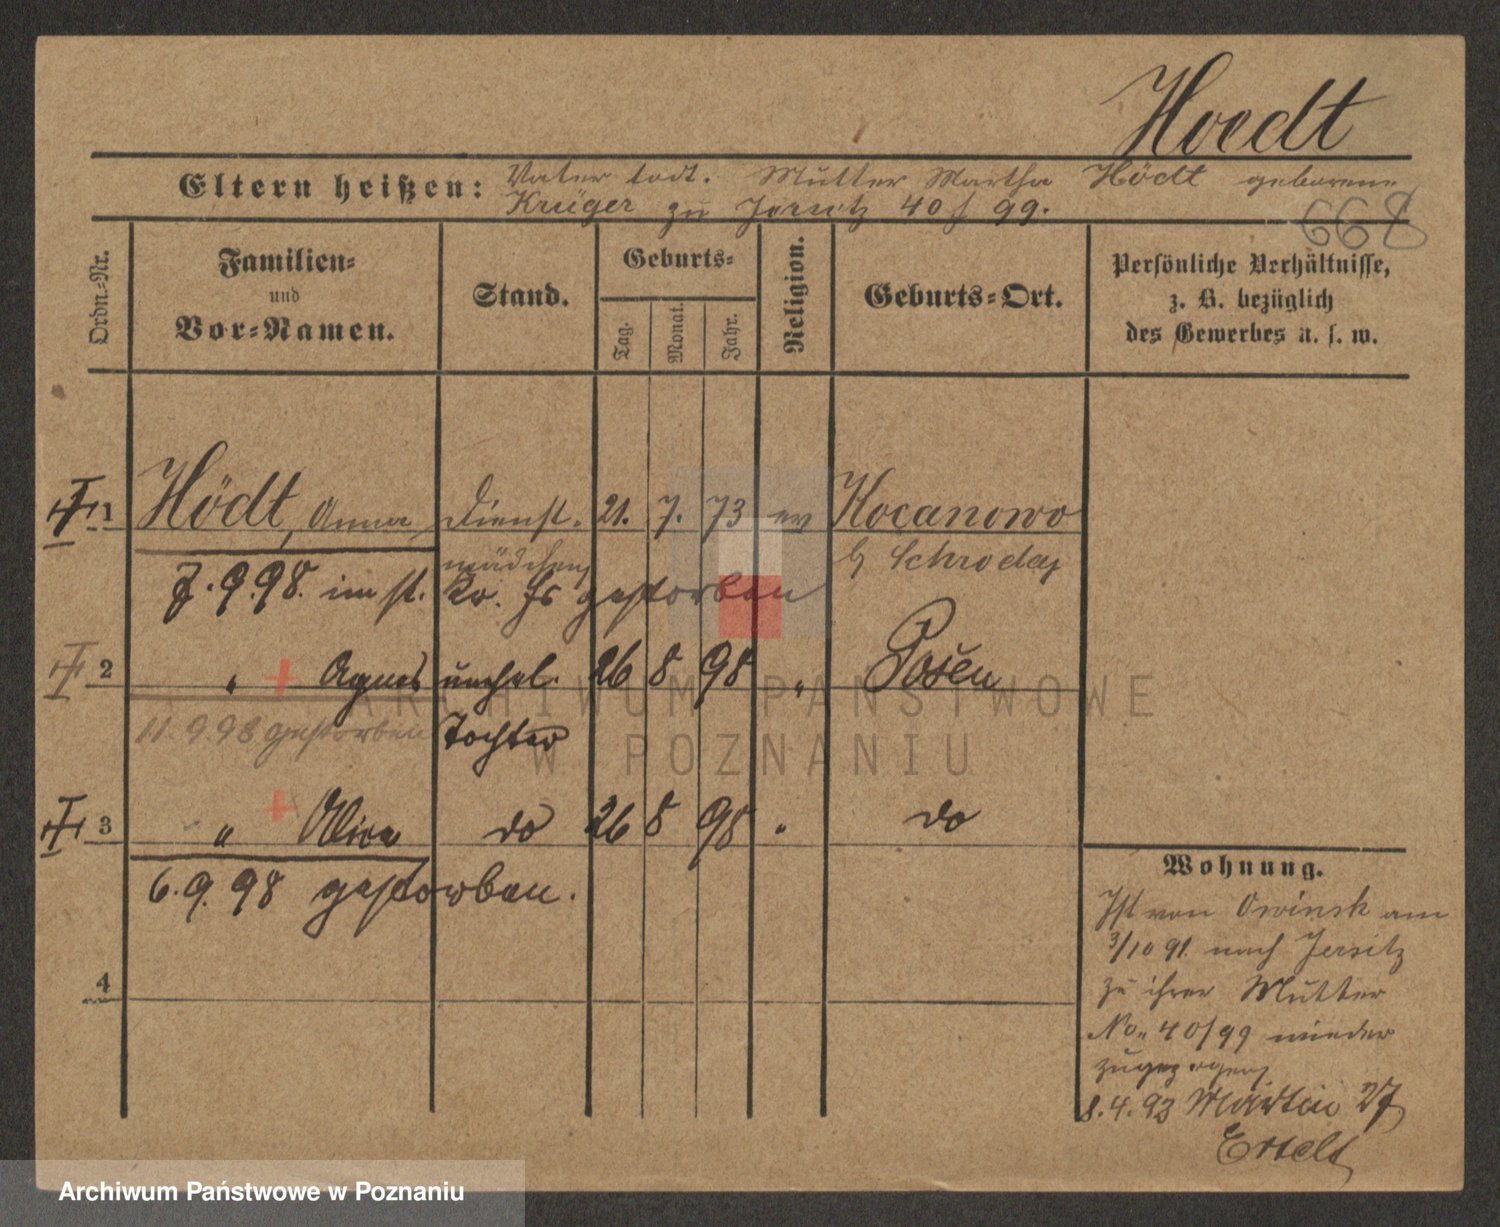 Hoedt
Eltern heißen: Vater todt. Mutter Martha Hödt geborene
Krüger zu Jersitz 40/99.
668
Ordn.-Nr.
Familien-
und
Vor-Namen.
Stand.
Geburts-
Tag.
Monat.
Jahr.
Religion.
Geburts-Ort.
Persönliche Verhältnisse,
z. B. bezüglich
des Gewerbes u. s. w.
1 Hödt, Anna Dienst- 21. 7. 73 ev Kocanowo
mädchen b/ Schroda
7.9.98. im st. Kr. Hs gestorben
2 " + Agnes unehel. 26 8 98 " Posen
11.9.98 gestorben Tochter
3 " + do 26 8 98 " do
6.9.98 gestorben.
4
Wohnung.
Ist von Owinsk am
3/10 91. nach Jersitz
zu ihrer Mutter
No. 40/99 wieder
zugezogen
8.4.93 Martin 27
ARCHIWUM PAŃSTWOWE
W POZNANIU
Archiwum Państwowe w Poznaniu